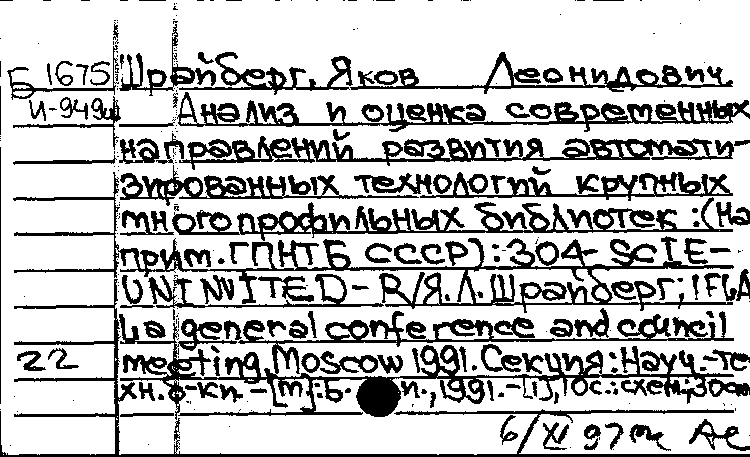 Б 1675 Шрайберг, Яков Леонидович.
И-949и Анализ и оценка современных
направлений развития автомати-
зированных технологий крупных
многопрофильных библиотек :(На
прим. ГПНТБ СССР):304-SCIE-
UNINVITED-R/Я.Л.Шрайберг; IFLA
La general conference and council
22 meeting, Moscow 1991. Секция: Науч.-те
хн. б-ки. - [М]:Б. и., 1991.-[1], 10с.:схем; 30см
6/XI 97